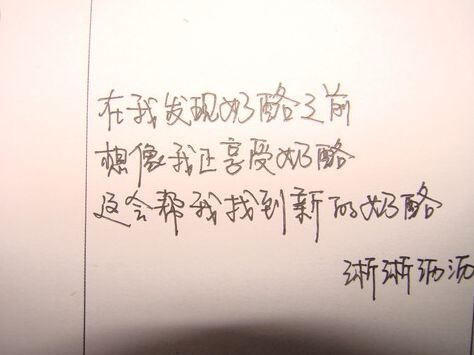 在我发现奶酪之前
想像我正享受奶酪
这会帮我找到新的奶酪
淅淅沥沥